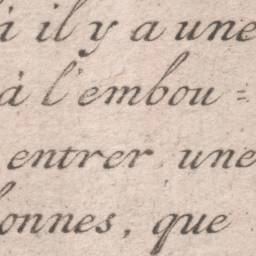 à il y a une
à l'embou =
entrer une
onnes, que